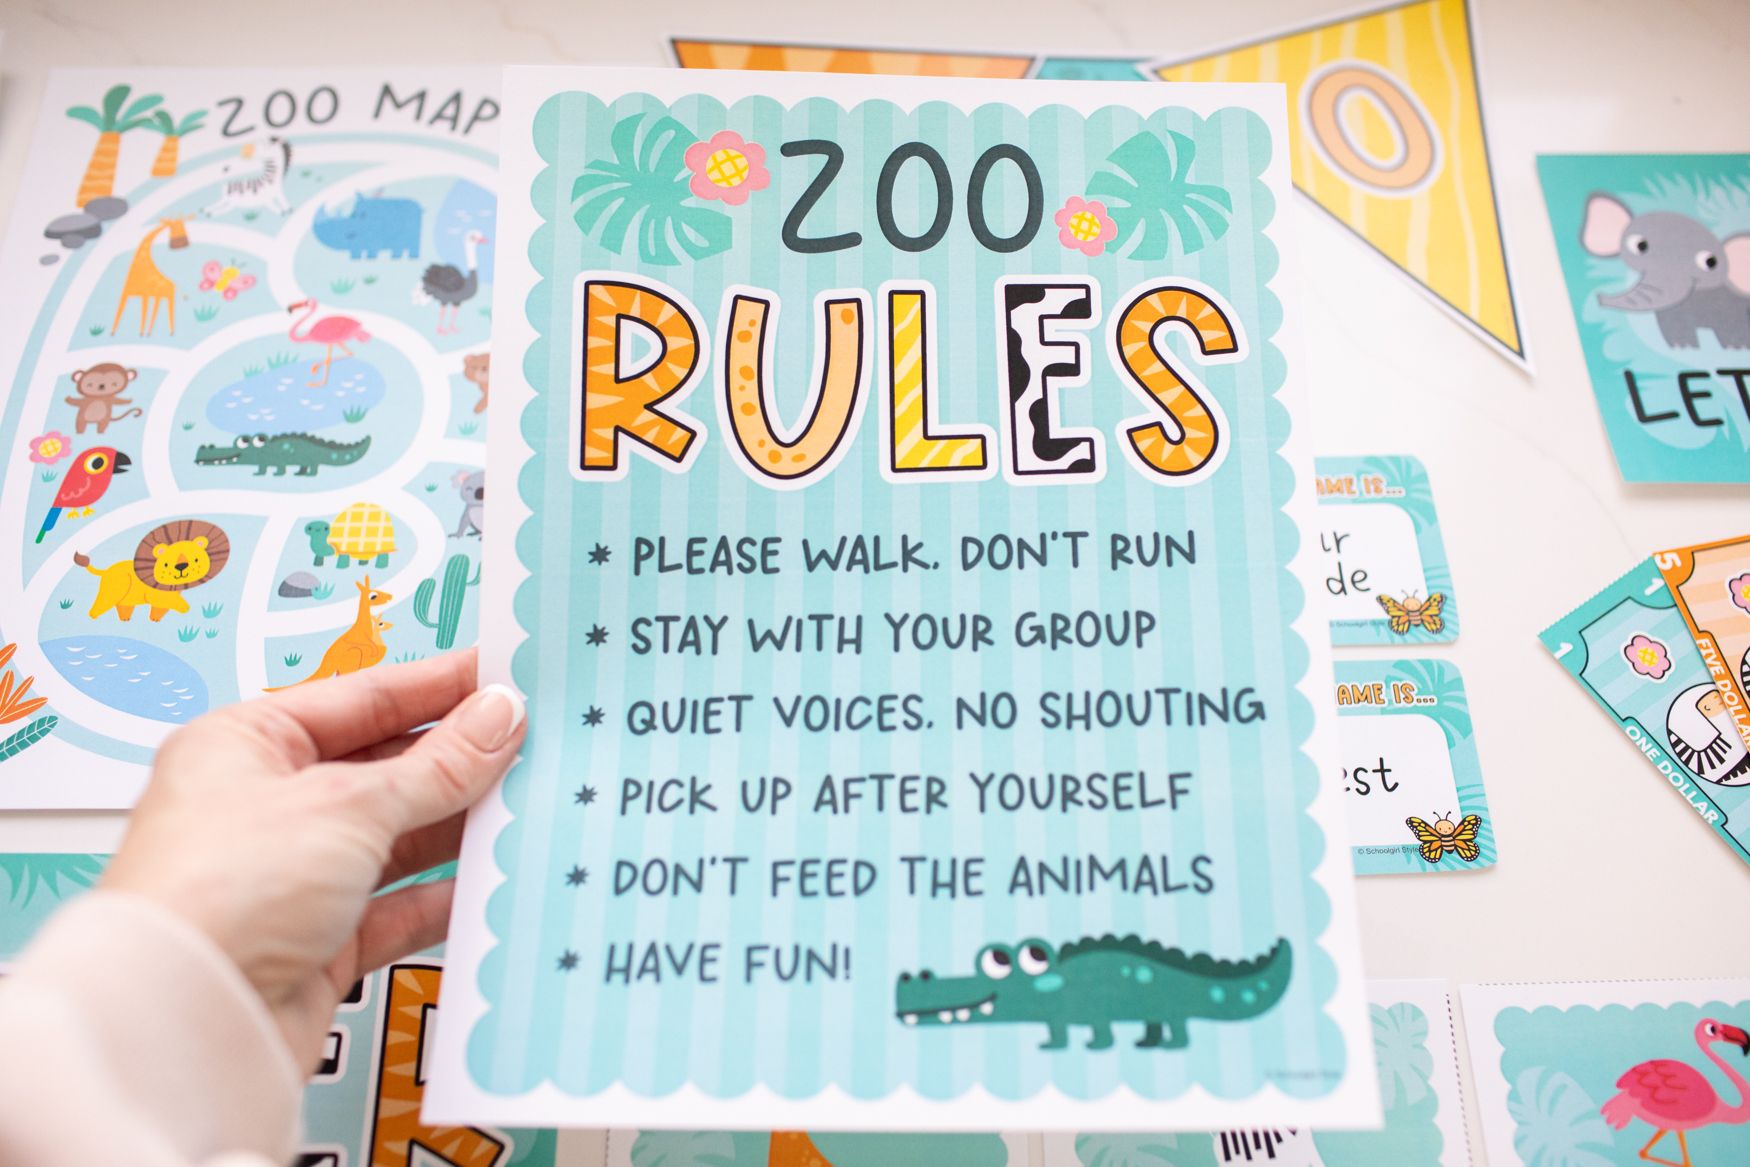 ZOO MAP
ZOO
RULES
* PLEASE WALK. DON'T RUN
* STAY WITH YOUR GROUP
* QUIET VOICES. NO SHOUTING
* PICK UP AFTER YOURSELF
* DON'T FEED THE ANIMALS
* HAVE FUN!
O
LET
AME IS...
ur
de
© Schoolgirl Style
AME IS...
est
© Schoolgirl Style
1
1
ONE DOLLAR
5
FIVE DOLLAR
R